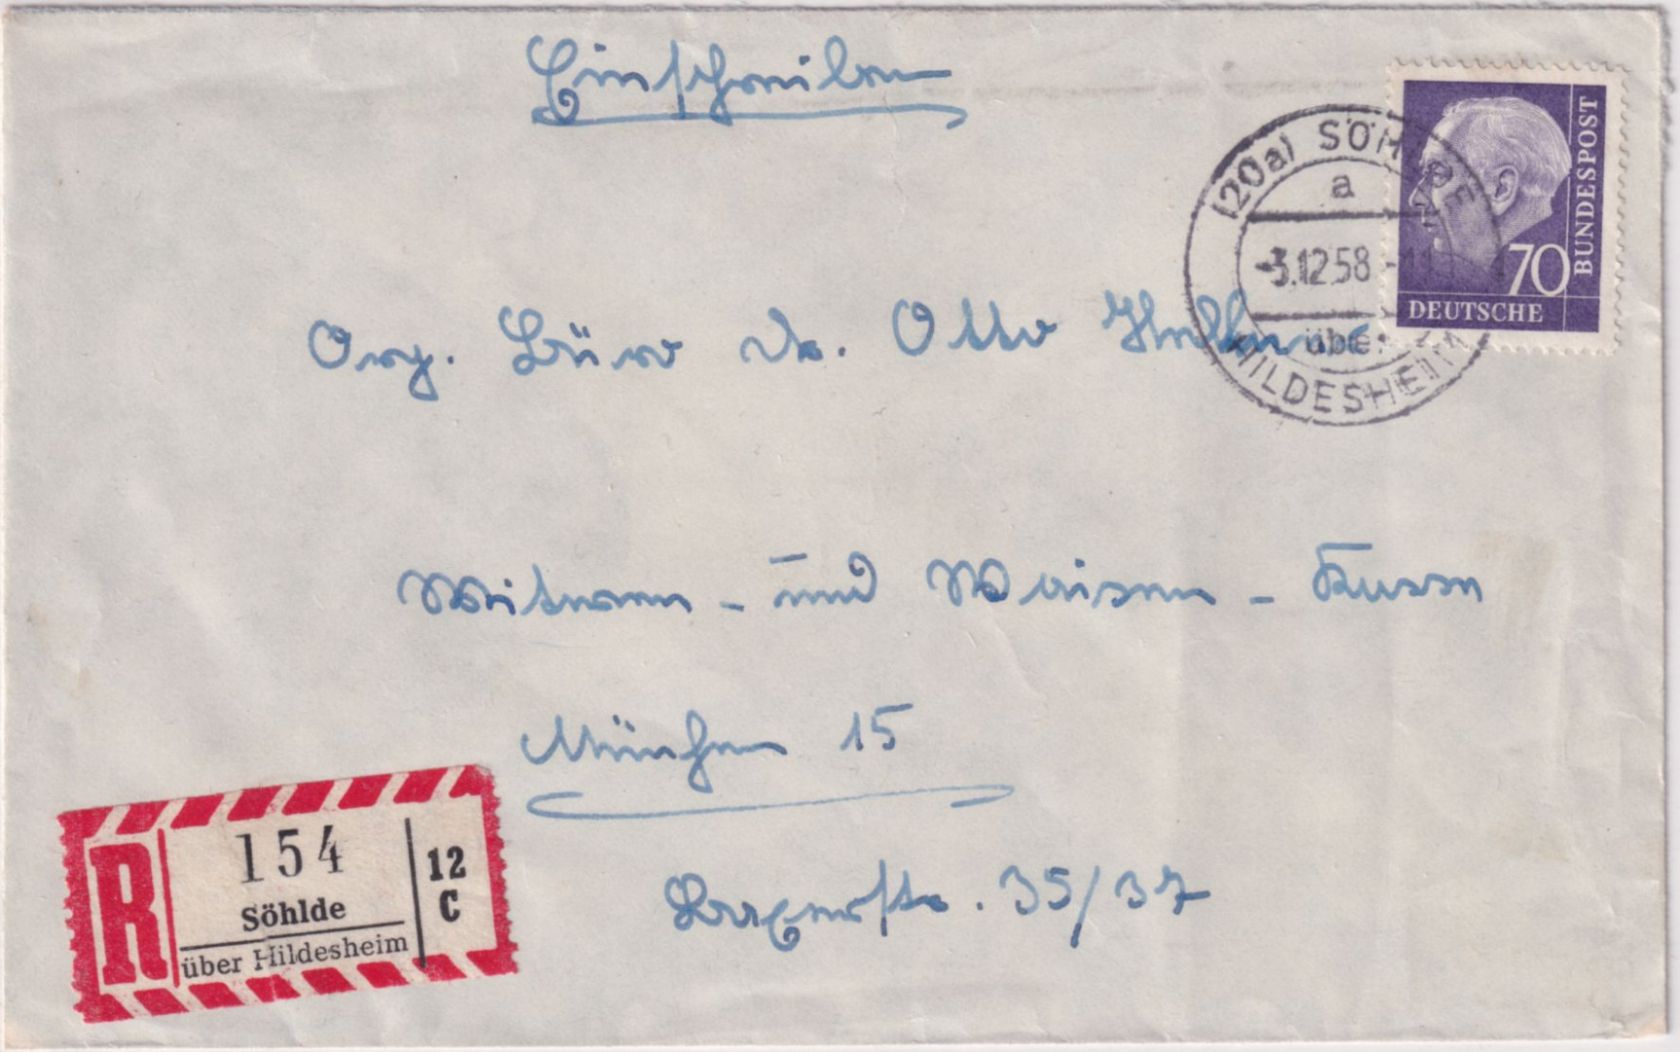 Einschreiben
(20a) SÖHLDE
a
-3.12.58-11
über
HILDESHEIM
70
BUNDESPOST
DEUTSCHE
Org. Büro Dr. Otto
Witwen - und Waisen - Kasse
München 15
Bayerstr. 35/37
R
154
Söhlde
über Hildesheim
12
C